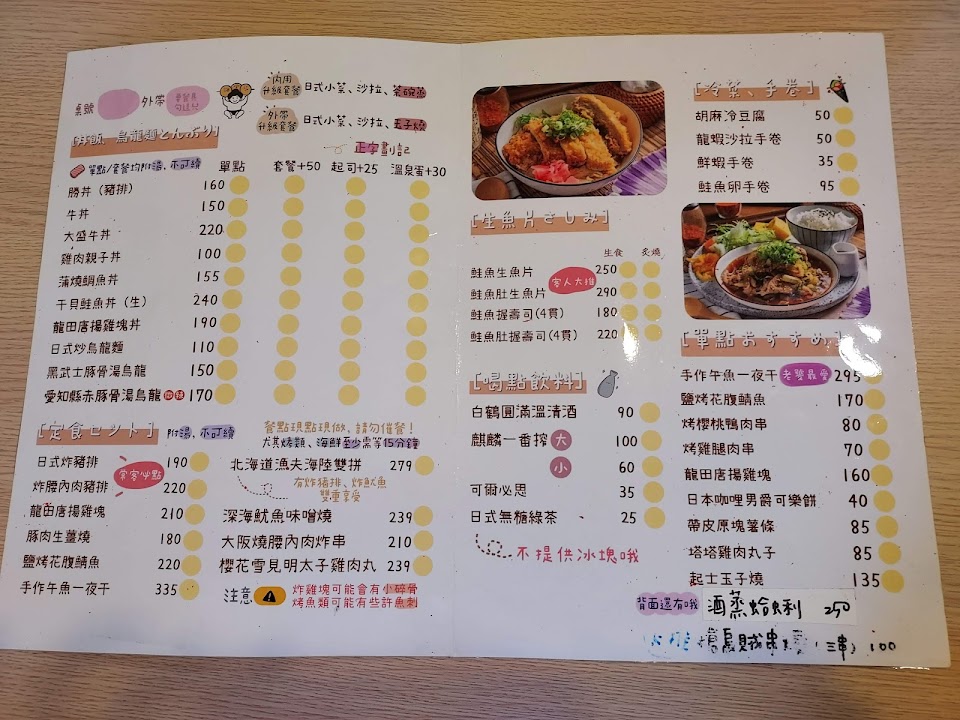 桌號 外帶
內用升級套餐 日式小菜、沙拉、茶碗蒸
外帶升級套餐 日式小菜、沙拉、玉子燒
正字劃記
[丼飯、烏龍麵どんぶり]
單點/套餐均附湯，不可續 單點 套餐+50 起司+25 溫泉蛋+30
勝丼（豬排） 160
牛丼 150
大盛牛丼 220
雞肉親子丼 100
蒲燒鯛魚丼 155
干貝鮭魚丼（生） 240
龍田唐揚雞塊丼 190
日式炒烏龍麵 110
黑武士豚骨湯烏龍 150
愛知縣赤豚骨湯烏龍 170
[定食セット] 附湯，不可續
日式炸豬排 190
常客必點
炸腰內肉豬排 220
龍田唐揚雞塊 210
豚肉生薑燒 180
鹽烤花腹鯖魚 220
手作午魚一夜干 335
餐點現點現做，請勿催餐！
尤其烤類、海鮮至少需等15分鐘
北海道漁夫海陸雙拼 279
有炸豬排、炸魷魚
雙重享受
深海魷魚味噌燒 239
大阪燒腰內肉炸串 210
櫻花雪見明太子雞肉丸 239
注意 炸雞塊可能會有小碎骨
烤魚類可能有些許魚刺
[生魚片さしみ]
生食 炙燒
鮭魚生魚片 250
客人大推
鮭魚肚生魚片 290
鮭魚握壽司(4貫) 180
鮭魚肚握壽司(4貫) 220
[喝點飲料]
白鶴圓滿溫清酒 90
麒麟一番搾 大 100
小 60
可爾必思 35
日式無糖綠茶 25
不提供冰塊哦
[冷菜、手卷]
胡麻冷豆腐 50
龍蝦沙拉手卷 50
鮮蝦手卷 35
鮭魚卵手卷 95
[單點おすすめ]
手作午魚一夜干 老婆最愛 295
鹽烤花腹鯖魚 170
烤櫻桃鴨肉串 80
烤雞腿肉串 70
龍田唐揚雞塊 160
日本咖哩男爵可樂餅 40
帶皮原塊薯條 85
塔塔雞肉丸子 85
起士玉子燒 135
背面還有哦 酒蒸蛤蜊 250
烏賊串 三串 100